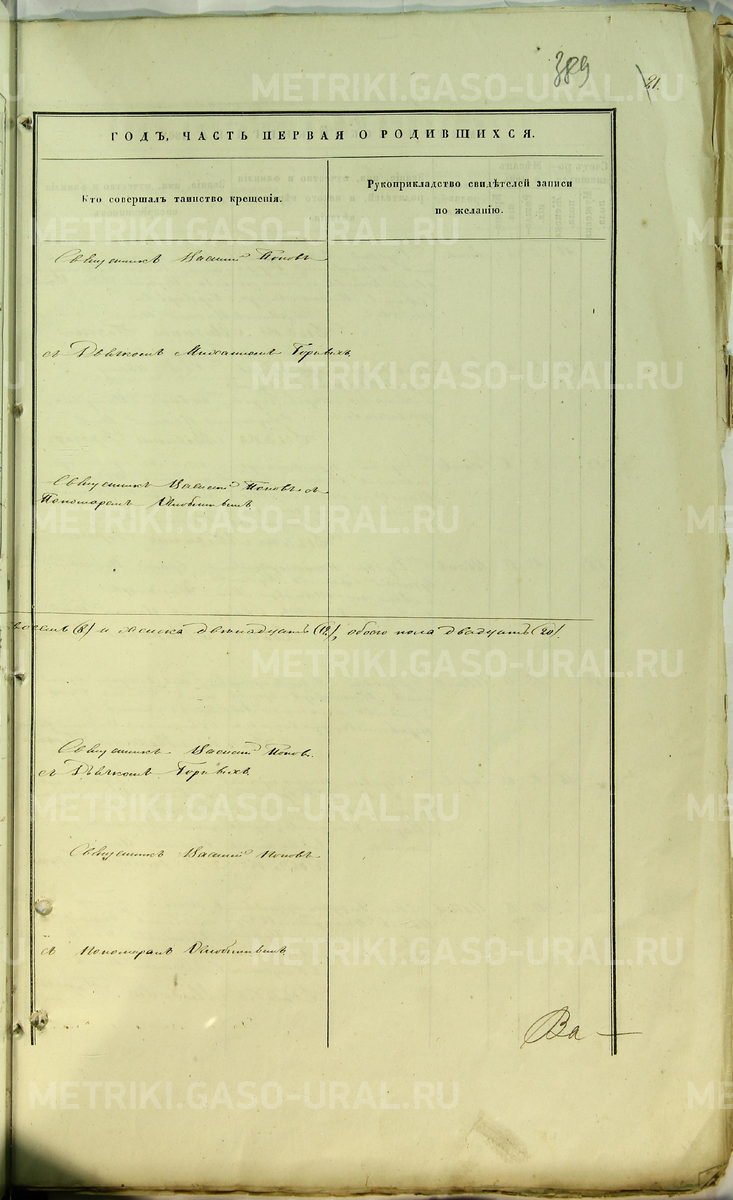 389
21.
ГОДЪ, ЧАСТЬ ПЕРВАЯ О РОДИВШИХСЯ.
Кто совершалъ таинство крещенія.
Рукоприкладство свидѣтелей записи
по желанію.
Священникъ Василій Поповъ
съ Дьячкомъ Михаиломъ Горныхъ
Священникъ Василій Поповъ съ
Пономаремъ
восемь (8) и женска двенадцать (12), обоего пола двадцать (20).
Священникъ Василій Поповъ
съ Дьячкомъ Горныхъ
Священникъ Василій Поповъ
съ Пономаремъ
Ва
METRIKI.GASO-URAL.RU